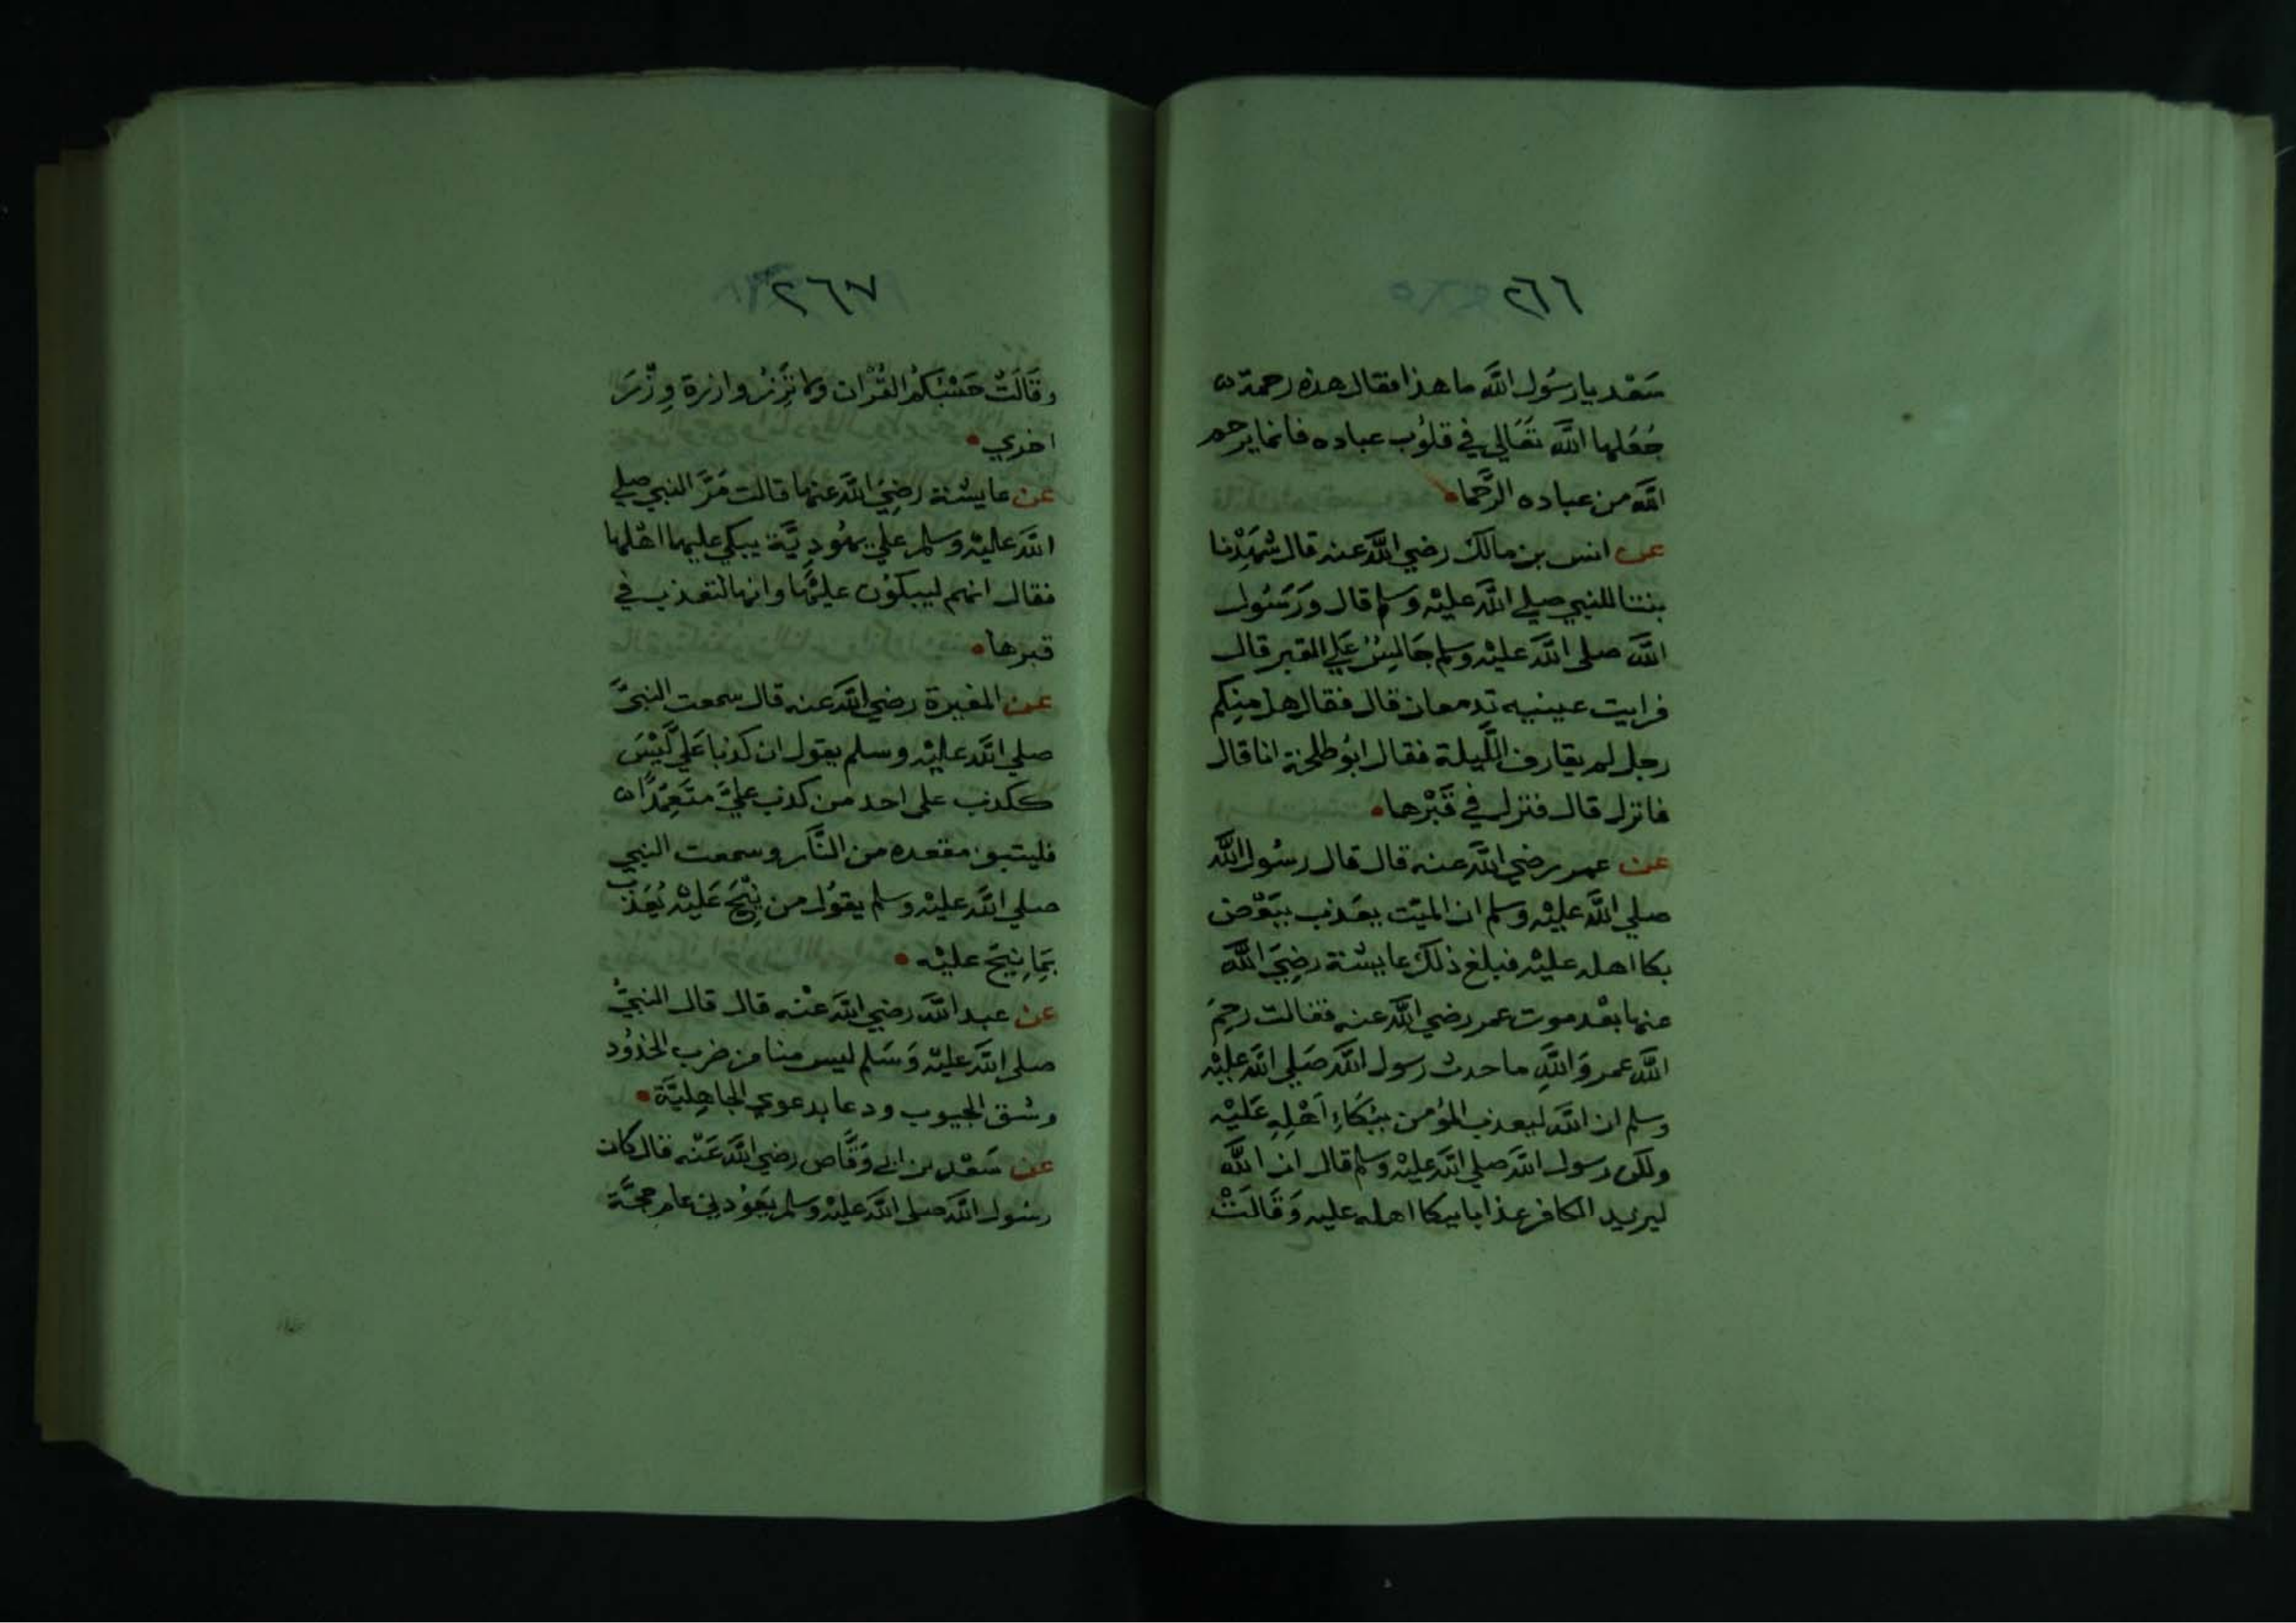 ٢٦٦
سَعْد يا رسُول اللَّه ما هذا فقال هذه رحمة
جُعَلها اللَّه تعَالي في قلوُب عباده فانما يرحم
اللَّه من عباده الرَّحما
عن انس بن مالك رضي اللَّه عنه قال شهِدْنا
بنتا للنبي صلي اللَّه عليْه وسلم قال ورَسُول
اللَّه صلى اللَّه عليْه وسلم جَالِسٌ عَلي القبر قال
فرايت عينيه تدمعان قال فقال هل منِكم
رجل لم يقارف اللَّيلة فقال ابوُ طلحة انا قال
فانزل قال فنزل في قَبْرها
عن عمر رضي اللَّه عنه قال قال رسُول اللَّه
صلي اللَّه عليْه وسلم ان الميّت يعَذب ببَعْض
بكا اهله عليْه فبلغ ذلك عايشة رضِيَ اللَّه
عنها بعْد موت عمر رضي اللَّه عنه فقالت رحِمَ
اللَّه عمر وَاللَّهِ ما حدث رسول اللَّه صَلي اللَّه عليْه
وسلم ان اللَّه ليعذب المؤمن ببُكَاءِ اَهْلِهِ عَليْه
ولكن رسول اللَّه صلي اللَّه عليْه وسلم قال ان اللَّه
ليزيد الكافر عذابا ببكا اهله عليه وَقَالَتْ
٢٦٧
وقَالَتْ حَسْبُكُم القُرْان ولا تَزِرُ وازرة وِزْرَ
اخري
عن عايشة رضِيَ اللَّه عنها قالت مَرَّ النبي صلي
اللَّه عليْه وسلم علي يهُودِيَّة يبكي عليها اهْلها
فقال انهم ليبكوُن عليْهَا وانها لتعذب في
قبرها
عن المغيرة رضي اللَّه عنه قال سمعت النبيَّ
صلي اللَّه عليْه وسلم يقول ان كذبا عَلي ليْسَ
ككذب على احد من كذب عليَّ متعَمِّدًا
فليتبو مقعده من النَّار وسمعت النبي
صلي اللَّه عليْه وسلم يقوُل من نِيْحَ عَليْه يُعَذب
بمِا نِيحَ عليْه
عن عبد اللَّه رضي اللَّه عنْه قال قال النبيُّ
صلى اللَّه عليْه وَسَلم ليس منا من ضرب الخدُود
وشق الجيوب ودعا بدعوي الجاهِليَّة
عن سَعْد بن ابي وَقَّاص رضي اللَّه عَنْه قال كان
رسُول اللَّه صلى اللَّه عليْه وسلم يَعُودني عام حجَّة